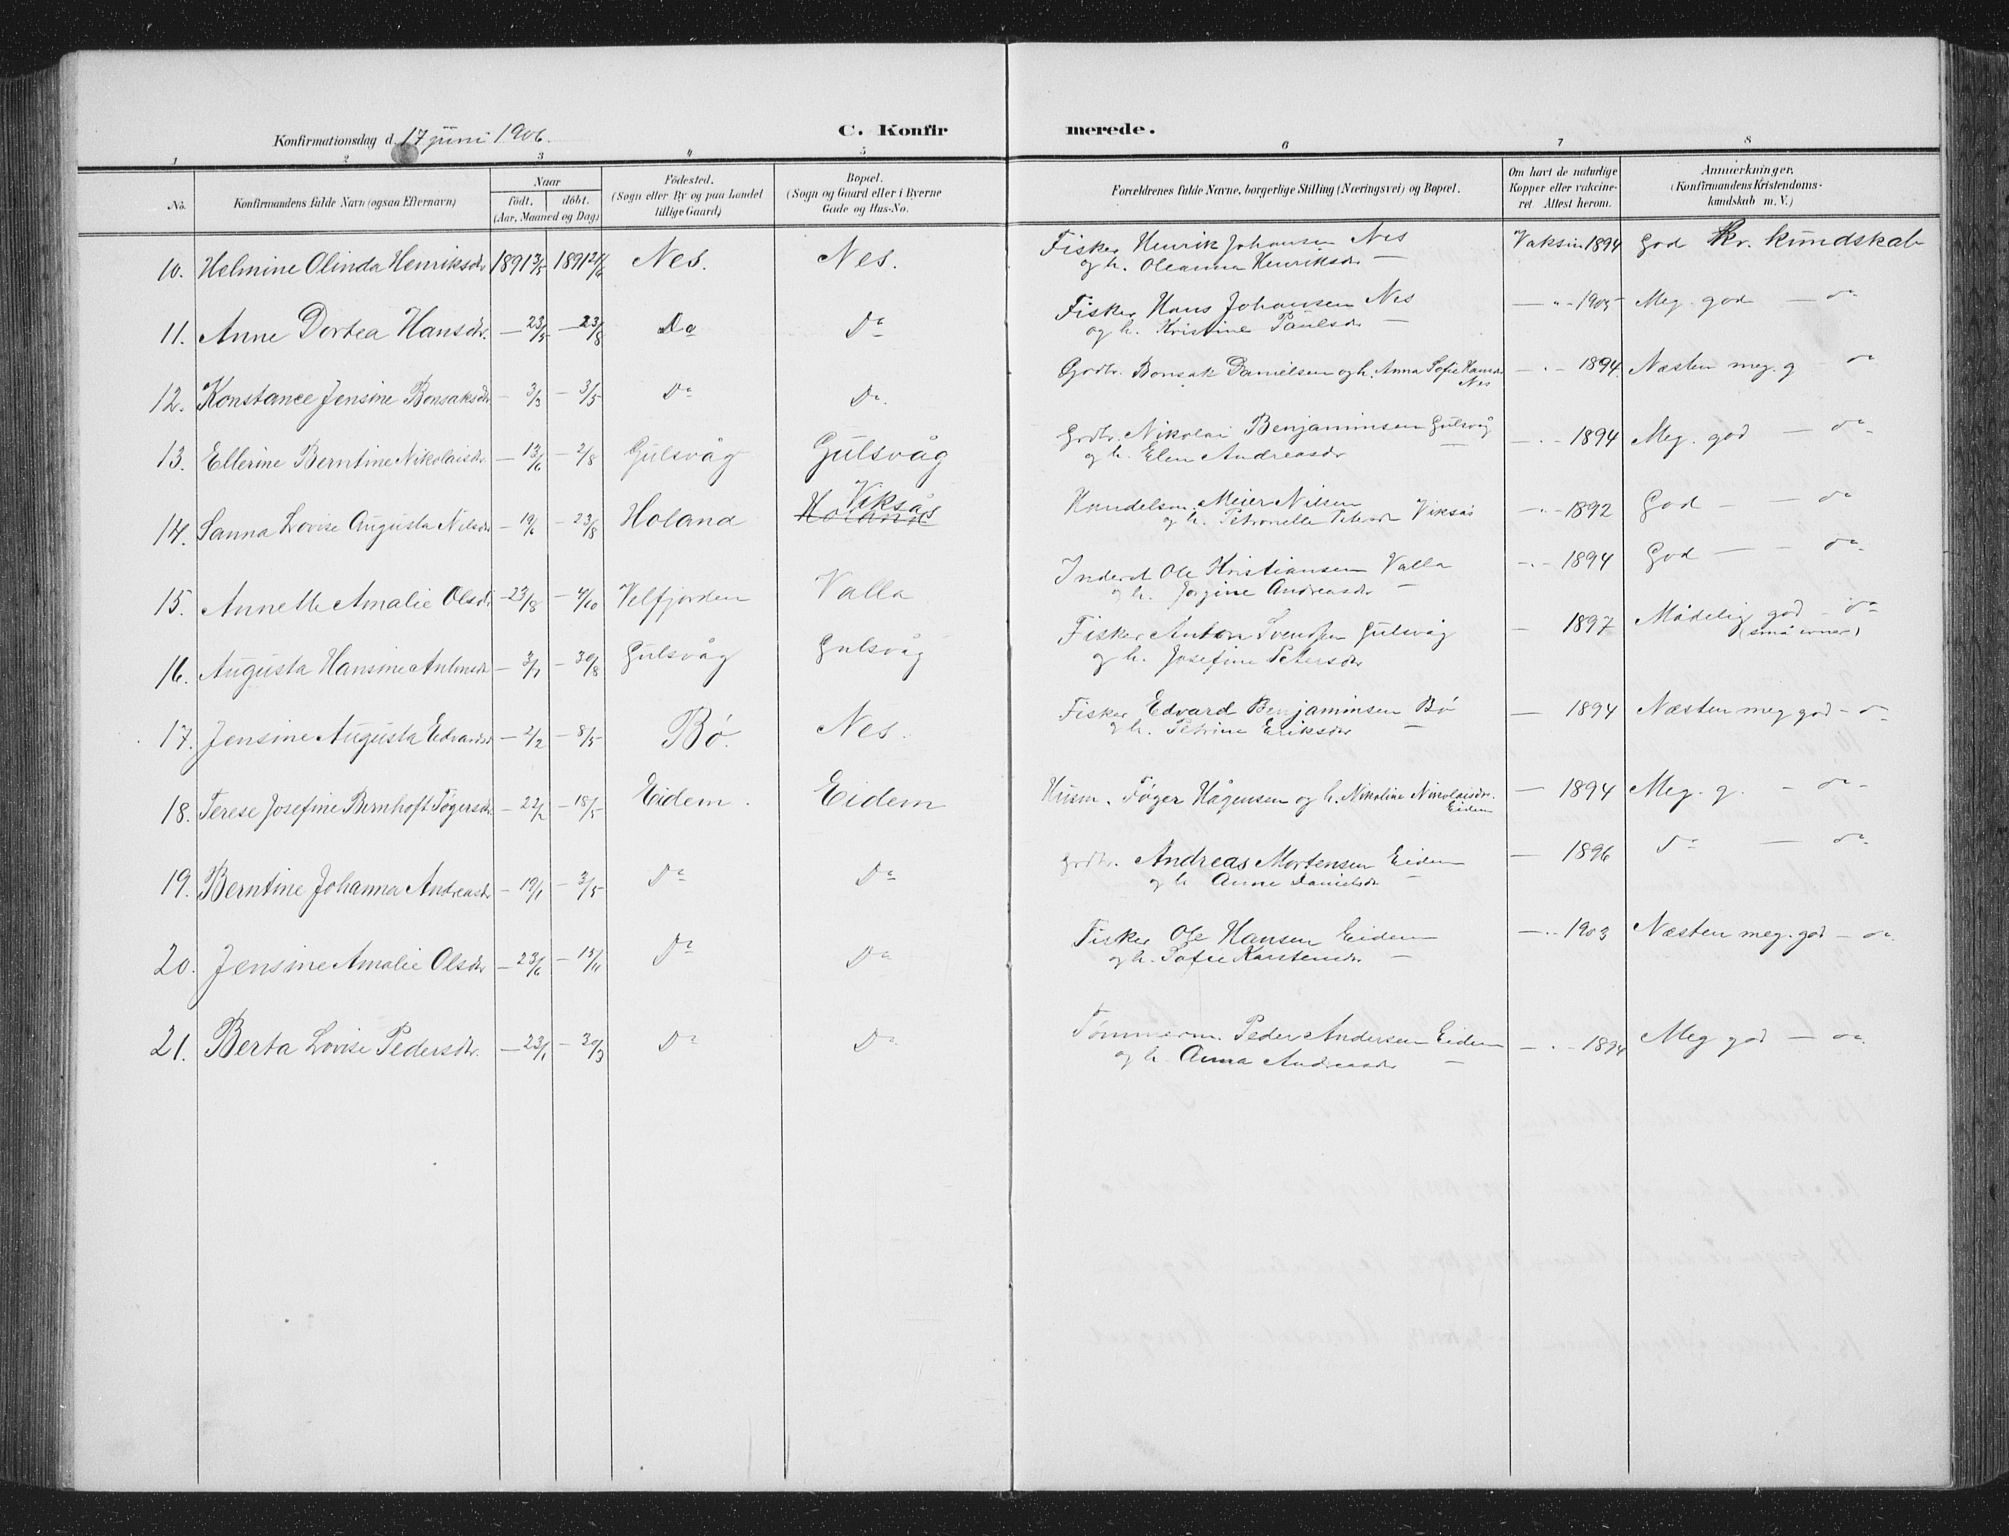 Konfirmationsdag d. 17 juni 1906. C. Konfirmerede.
1 2 3 4 5 6 7 8
No. Konfirmandens fulde Navn (ogsaa Efternavn) Naar født. døbt. (Aar, Maaned og Dag) Fødested. (Sogn eller By og paa Landet tillige Gaard) Bopæl. (Sogn og Gaard eller i Byerne Gade og Hus-No. Forældrenes fulde Navne, borgerlige Stilling (Næringsvei) og Bopæl. Om havt de naturlige Kopper eller vakcineret. Attest herom. Anmærkninger. (Konfirmandens Kristendomskundskab m. V.)
10. Helmine Olinda Henriksdr 1891 3/5 1891 21/6 Nes. Nes. Fisker Henrik Johansen Nes Vaksin 1894 God Kr. kundskab
og h. Oleanna Henriksdr —
11. Anne Dortea Hansdr. — 23/5 — 23/8 Do Do Fisker Hans Johansen Nes — " — 1905 Meg. god — do
og h. Kristine Paulsdr —
12. Konstance Jensine Bonsaksdr — 3/3 — 3/5 Do Do. Gdbr. Bonsak Danielsen og h. Anna Sofie Hansdr — " — 1894 Næsten meg. g — do
Nes
13. Ellerine Berntine Nikolaisdr. — 13/6 — 2/8 Gulsvåg Gulsvåg Grdbr. Nikolai Benjaminsen Gulsvåg — " — 1894 Meg. god — do
og h. Elen Andreasdr —
14. Sanna Lovise Augusta Nilsdr — 19/6 — 23/8 Holand Viksås Handelsm. Meier Nilsen — " — 1892 God — do
Holand og h. Petronelle Petersdr Viksås
15. Annette Amalie Olsdr — 23/8 — 4/10 Velfjorden Valla Inderst Ole Kristiansen Valla — " — 1894 God — — do
og h. Jørgine Andreasdr —
16. Augusta Hansine Antonsdr — 3/7 — 30/8 Gulsvåg Gulsvåg Fisker Anton Svendsen Gulsvåg — 1897 Mådelig god — do
og h. Josefine Petersdr (små evner)
17. Jensine Augusta Edvardsdr — 2/2 — 8/5 Bø. Nes. Fisker Edvard Benjaminsen Bø — 1894 Næsten meg god — do
og h. Petrine Eriksdr —
18. Terese Josefine Bernhoft Tøgersdr — 22/2 — 18/5 Eidem. Eidem Husm. Tøger Hågensen og h. Nikoline Nikolaisdr. — 1894 Meg. g. — do
Eidem
19. Berntine Johanna Andreasdr — 19/1 — 3/5 Do Do Grdbr. Andreas Mortensen Eidem — 1896 do — do
og h. Anne Danielsdr —
20. Jensine Amalie Olsdr — 23/6 — 15/11 Do Do Fisker Ole Hansen Eidem — " — 1903 Næsten meg. god — do
og h. Sofie Karstensdr —
21. Berta Lovise Pedersdr. — 23/1 — 30/3 Do Do Tømmerm. Peder Andersen Eidem — " — 1894 Meg god — do
og h. Anna Andreasdr —